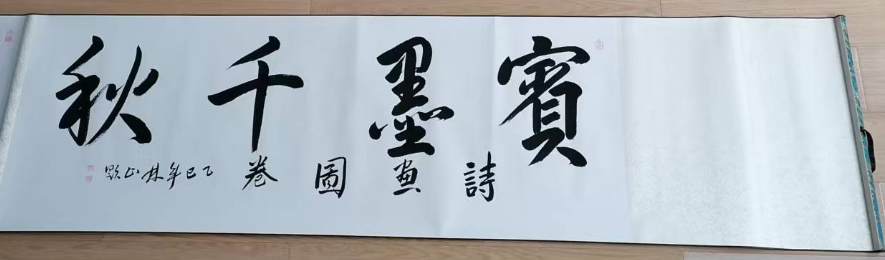 賓墨千秋
詩畫圖卷
乙巳年林山題